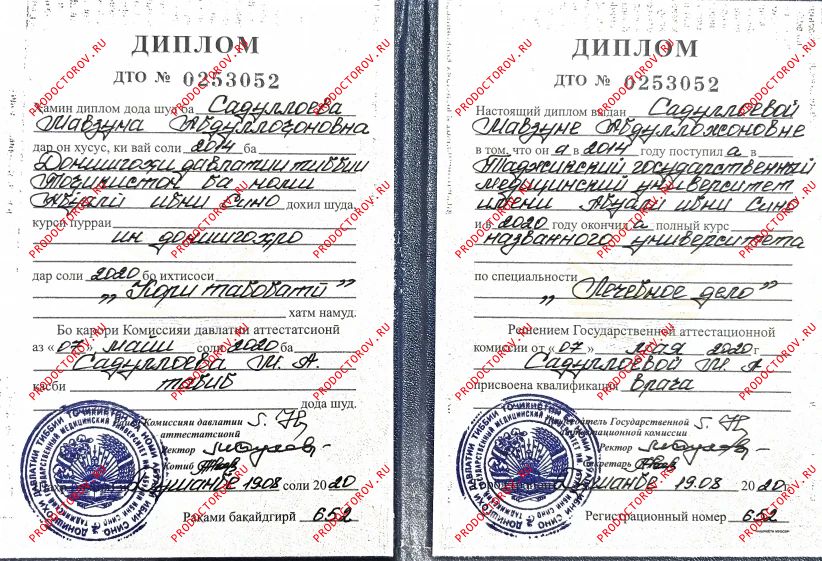 ДИПЛОМ
ДТО № 0253052
Ҳамин диплом дода шуд ба Садуллоева
Мавзуна Абдуллоҷоновна
дар он хусус, ки вай соли 2014 ба
Донишгоҳи давлатии тиббии
Тоҷикистон ба номи
Абӯалӣ ибни Сино дохил шуда,
курси пурраи
ин донишгоҳро
дар соли 2020 бо ихтисоси
„Кори табобатӣ”
хатм намуд.
Бо қарори Комиссияи давлатии аттестатсионӣ
аз «07» майи соли 2020 ба
Садуллоева М. А.
касби табиб
дода шуд.
Комиссияи давлатии
аттестатсионӣ
Ректор
Котиб
Душанбе 19.08 соли 2020
Рақами бақайдгирӣ 652
ДИПЛОМ
ДТО № 0253052
Настоящий диплом выдан Садуллоевой
Мавзуне Абдуллоҷоновне
в том, что она в 2014 году поступила в
Таджикский государственный
медицинский университет
имени Абуали ибни Сино
и в 2020 году окончила полный курс
названного университета
по специальности
„Лечебное дело”
Решением Государственной аттестационной
комиссии от «07» мая 2020 г
Садуллоевой М. А
присвоена квалификация Врача
Председатель Государственной
аттестационной комиссии
Ректор
Секретарь
Душанбе 19.08 2020 г.
Регистрационный номер 652
PRODOCTOROV.RU